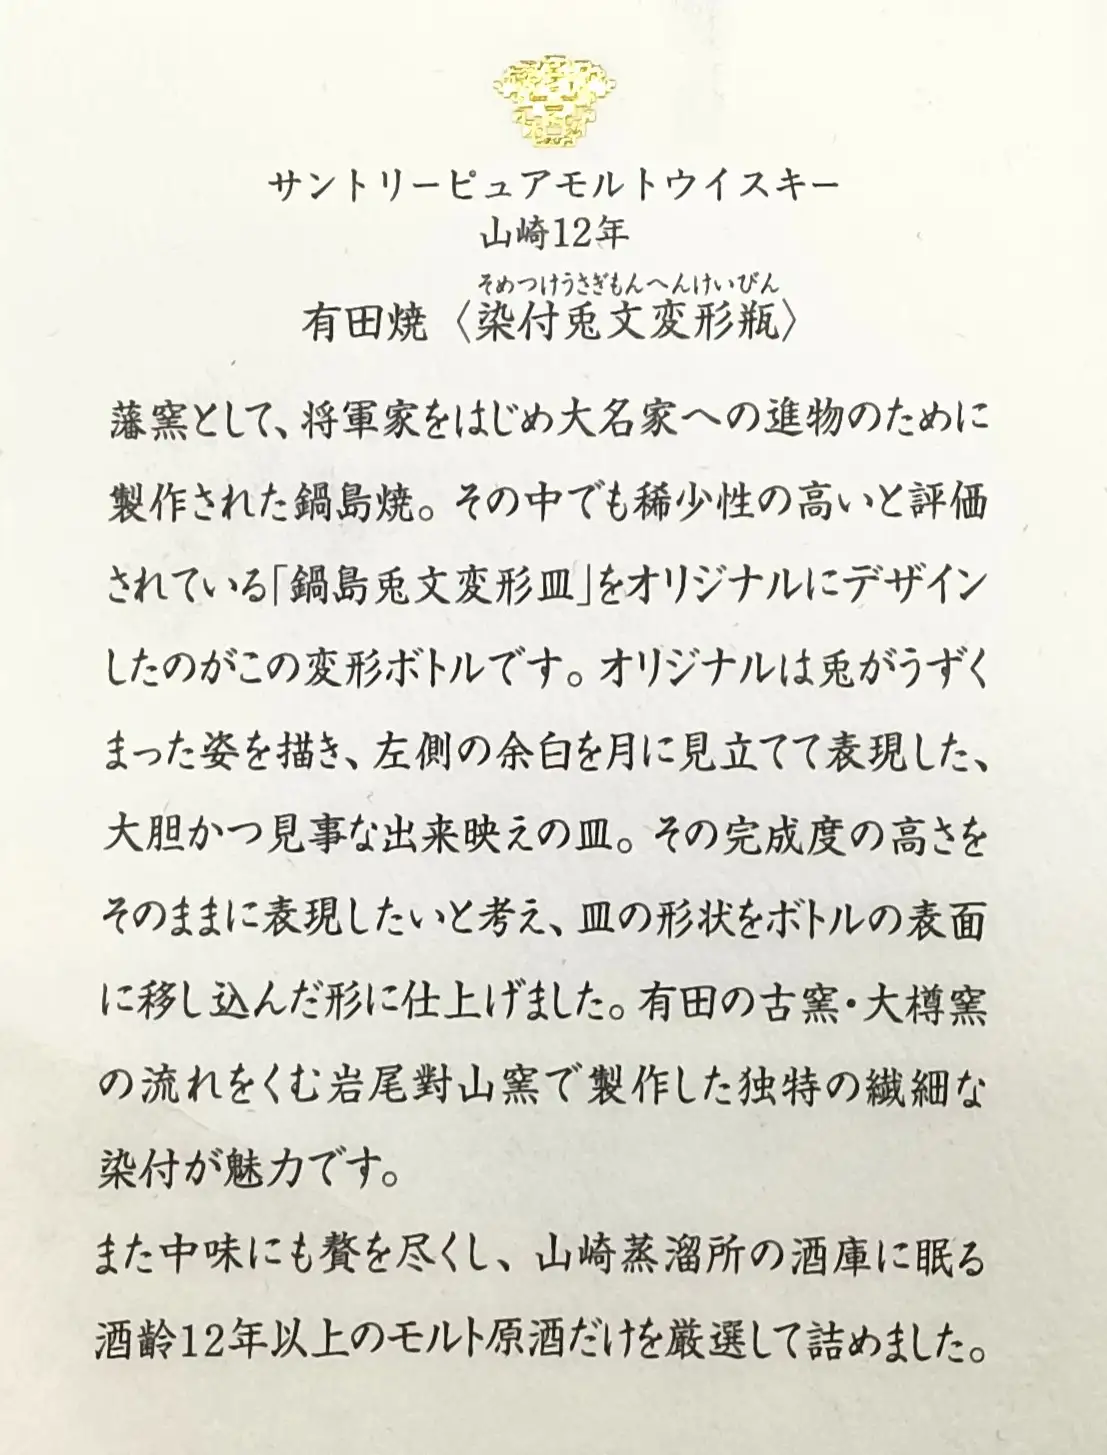 サントリーピュアモルトウイスキー
山崎12年
そめつけうさぎもんへんけいびん
有田焼〈染付兎文変形瓶〉
藩窯として、将軍家をはじめ大名家への進物のために
製作された鍋島焼。その中でも稀少性の高いと評価
されている「鍋島兎文変形皿」をオリジナルにデザイン
したのがこの変形ボトルです。オリジナルは兎がうずく
まった姿を描き、左側の余白を月に見立てて表現した、
大胆かつ見事な出来映えの皿。その完成度の高さを
そのままに表現したいと考え、皿の形状をボトルの表面
に移し込んだ形に仕上げました。有田の古窯・大樽窯
の流れをくむ岩尾對山窯で製作した独特の繊細な
染付が魅力です。
また中味にも贅を尽くし、山崎蒸溜所の酒庫に眠る
酒齢12年以上のモルト原酒だけを厳選して詰めました。